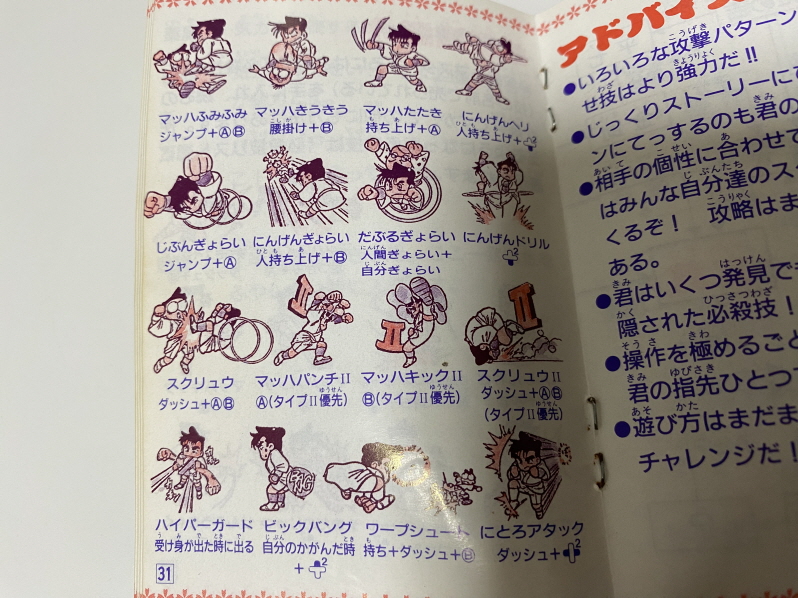 マッハふみふみ
ジャンプ+ⒶⒷ
マッハきうきう
腰掛け+Ⓑ
マッハたたき
持ち上げ+Ⓐ
にんげんヘリ
人持ち上げ+
じぶんぎょらい
ジャンプ+Ⓐ
にんげんぎょらい
人持ち上げ+Ⓑ
だぶるぎょらい
人間ぎょらい+
自分ぎょらい
にんげんドリル
スクリュウ
ダッシュ+ⒶⒷ
マッハパンチⅡ
Ⓐ(タイプⅡ優先)
マッハキックⅡ
Ⓑ(タイプⅡ優先)
スクリュウⅡ
ダッシュ+ⒶⒷ
(タイプⅡ優先)
ハイパーガード
受け身が出た時に出る
ビックバング
自分のかがんだ時
+
ワープシュート
持ち+ダッシュ+Ⓑ
にとろアタック
ダッシュ+
31
アドバイス
●いろいろな攻撃パターン
せ技はより強力だ!!
●じっくりストーリーに
ンにてっするのも君の
●相手の個性に合わせて
はみんな自分達のス
くるぞ! 攻略はま
ある。
●君はいくつ発見で
隠された必殺技!
●操作を極めるご
君の指先ひとつ
●遊び方はまだま
チャレンジだ!